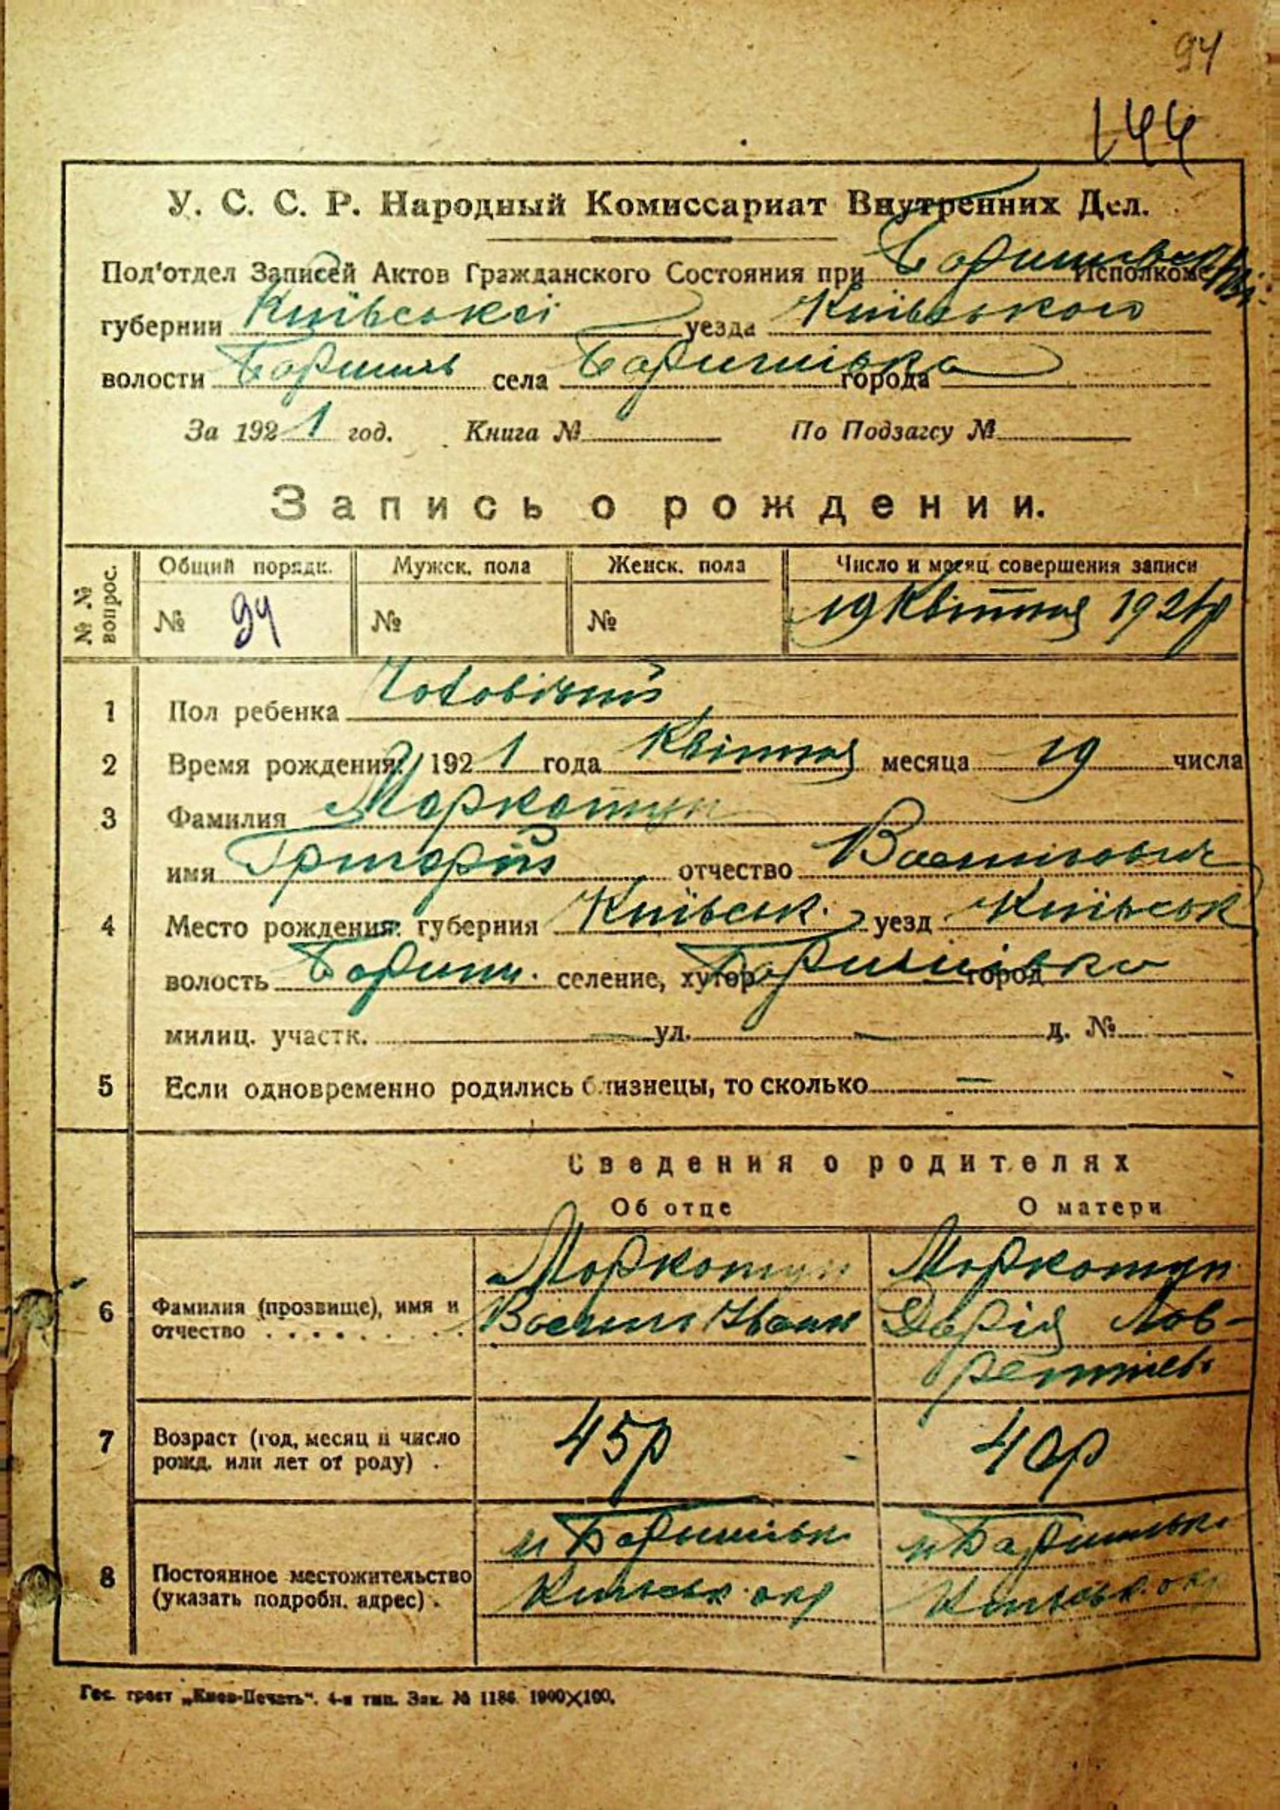 94
144
У. С. С. Р. Народный Комиссариат Внутренних Дел.
Под'отдел Записей Актов Гражданского Состояния при Исполкоме
губернии Київської уезда Київського
волости Баришів села Баришівка города
За 1921 год. Книга № По Подзагсу №
Запись о рождении.
№ № вопрос. Общий порядк. Мужск. пола Женск. пола Число и месяц совершения записи
№ 94 № № 19 Квітня 1921р
1 Пол ребенка Чоловічий
2 Время рождения: 1921 года Квітня месяца 19 числа
3 Фамилия Маркотун
имя Григорій отчество Васильович
4 Место рождения: губерния Київськ. уезд Київськ
волость Бориш. селение, хутор Баришівка город
милиц. участк. — ул. — д. №
5 Если одновременно родились близнецы, то сколько —
Сведения о родителях
Об отце О матери
6 Фамилия (прозвище), имя и отчество Маркотун Василь Іван Маркотун Дарія Лаврентієв.
7 Возраст (год, месяц и число рожд. или лет от роду) . 45р 40р
8 Постоянное местожительство (указать подробн. адрес) . м Баришівк Київськ. окр м Баришівка Київськ. окр
Гос. трест „Киев-Печать". 4-я тип. Зак. № 1186. 1000×100.